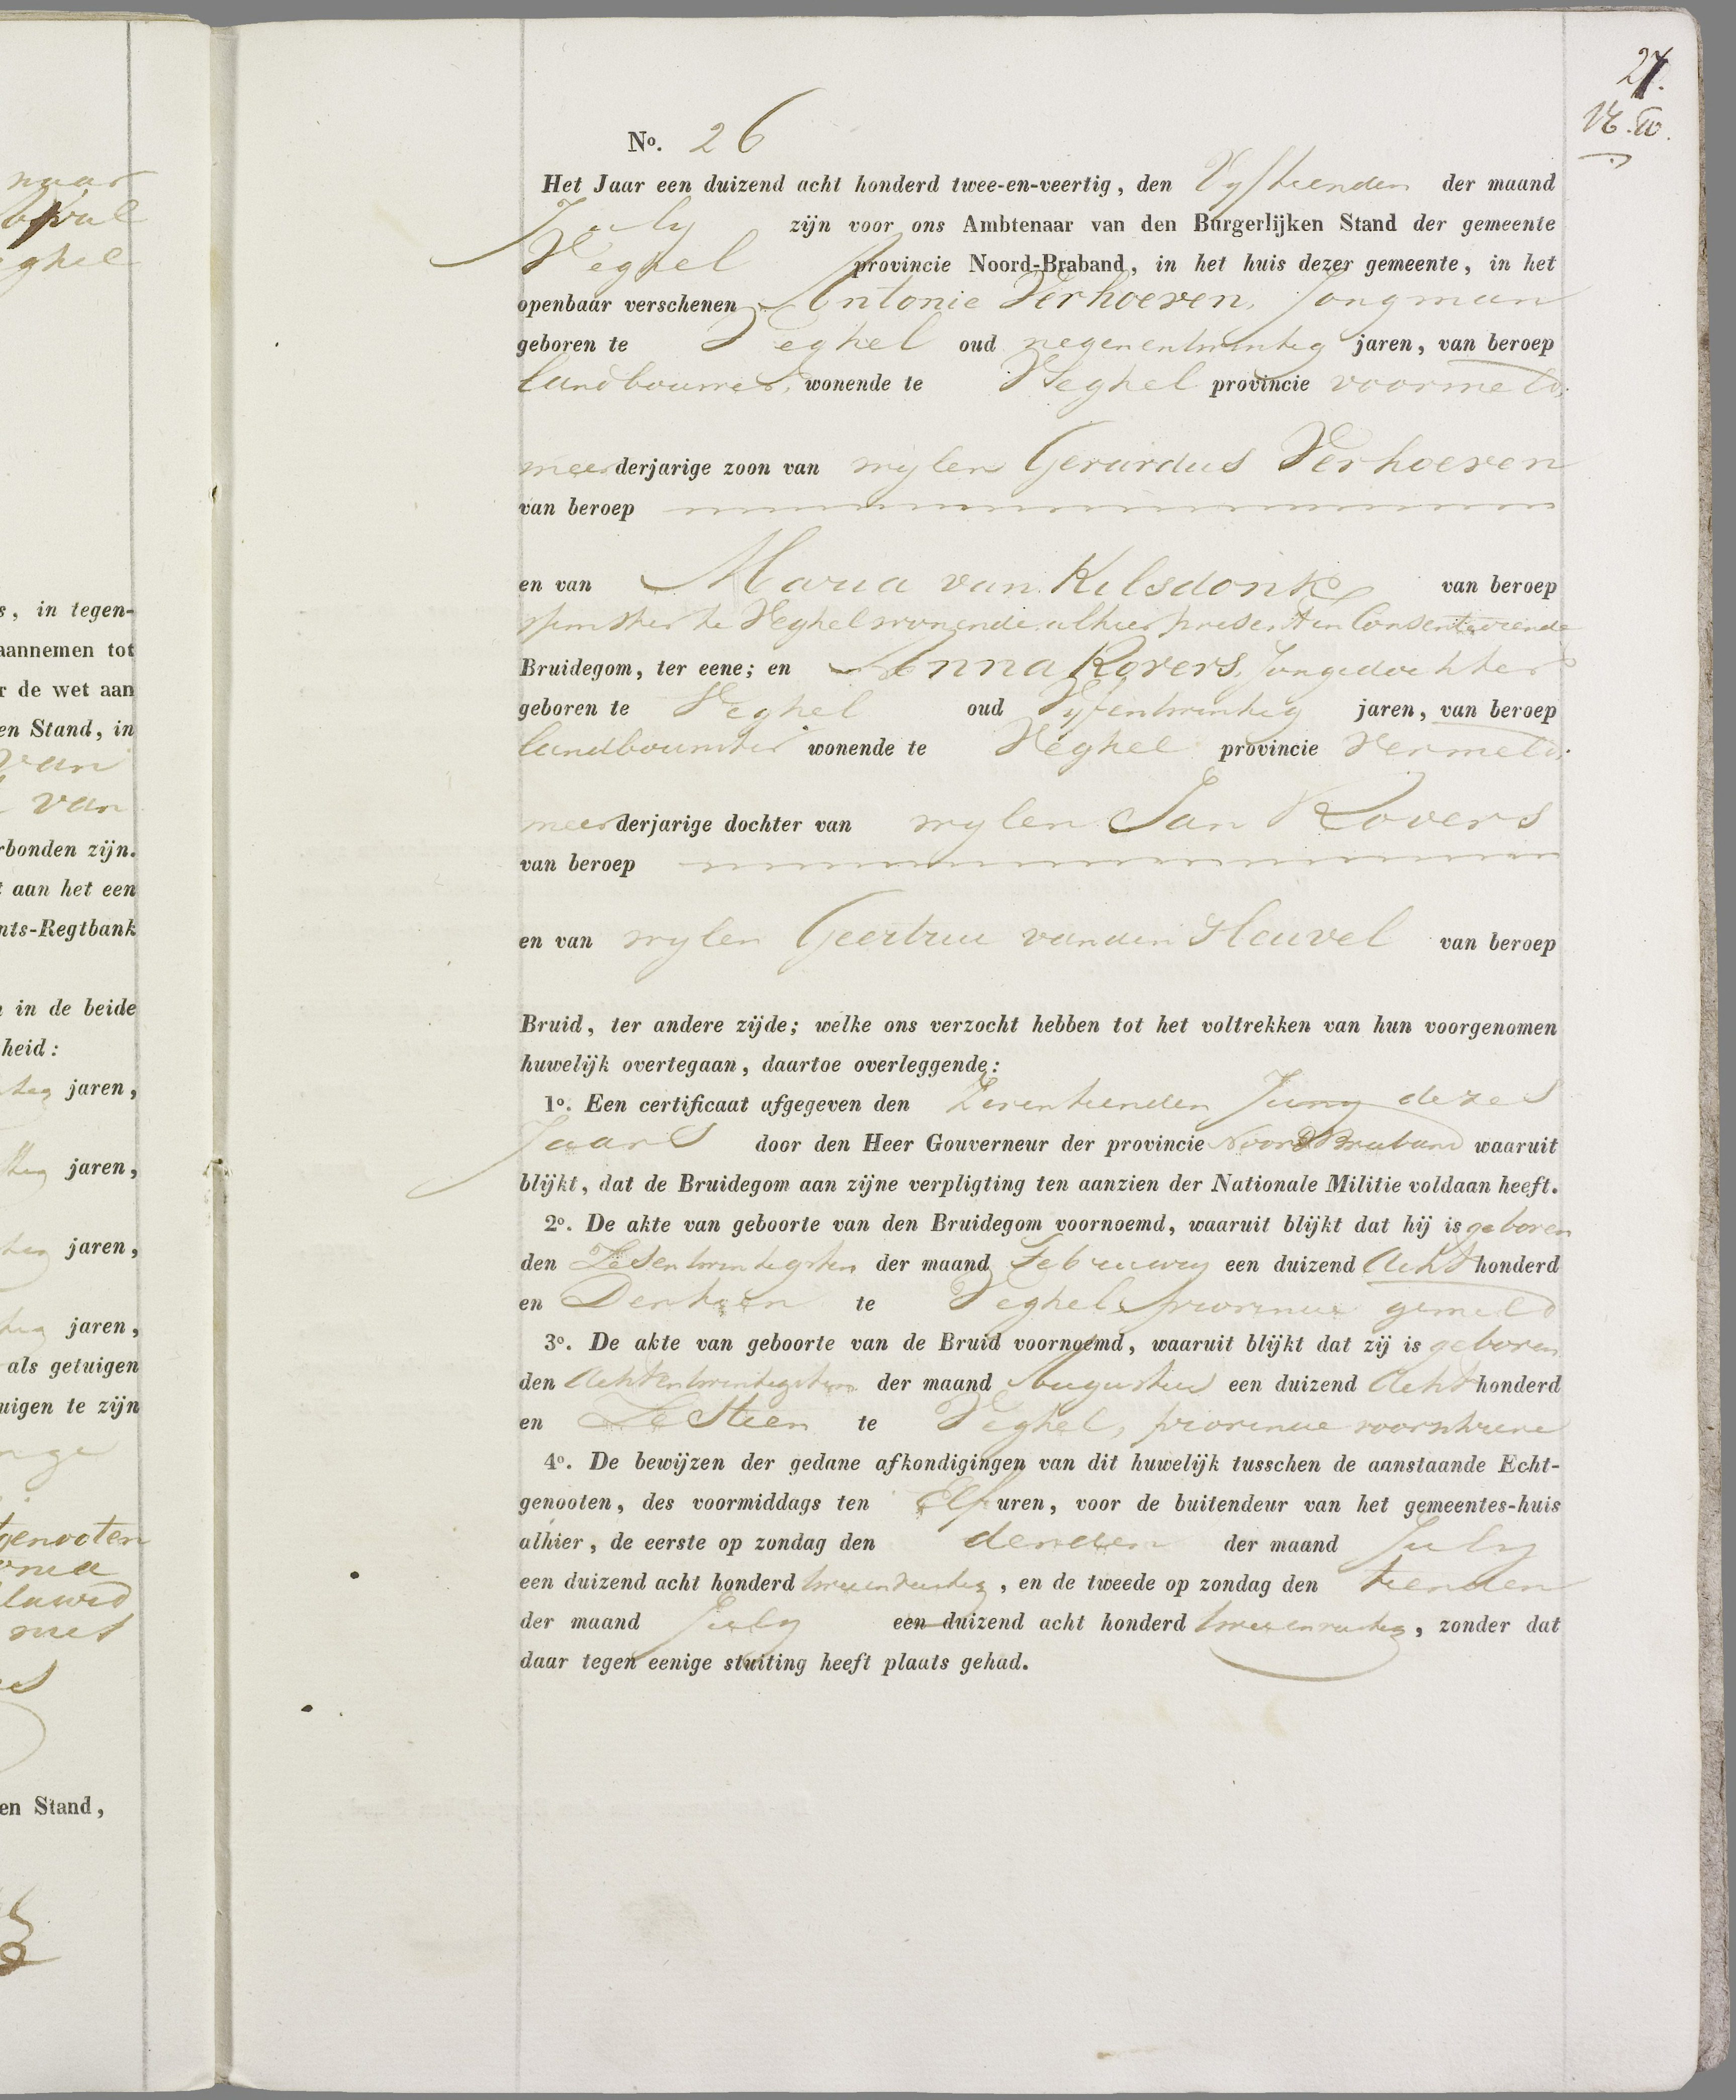 naar
eghel
s, in tegen-
aannemen tot
r de wet aan
en Stand, in
van
van
rbonden zijn.
t aan het een
nts-Regtbank
n in de beide
heid:
tig jaren,
tig jaren,
tig jaren,
tig jaren,
als getuigen
uigen te zijn
genooten
met
en Stand,
27.
No. 26
Het Jaar een duizend acht honderd twee-en-veertig, den Vyftienden der maand
July zijn voor ons Ambtenaar van den Burgerlijken Stand der gemeente
Veghel provincie Noord-Braband, in het huis dezer gemeente, in het
openbaar verschenen Antonie Verhoeven, Jongman
geboren te Veghel oud negenentwintig jaren, van beroep
landbouwer, wonende te Veghel provincie voormeld;
meerderjarige zoon van wylen Gerardus Verhoeven
van beroep
en van Maria van Kilsdonk van beroep
spinster te Veghel wonende alhier present en Consenteerende
Bruidegom, ter eene; en Anna Rovers, Jongedochter
geboren te Veghel oud Vyfentwintig jaren, van beroep
landbouwster wonende te Veghel provincie Vermeld;
meerderjarige dochter van wylen Jan Rovers
van beroep
en van wylen Geertrui vanden Heuvel van beroep
Bruid, ter andere zijde; welke ons verzocht hebben tot het voltrekken van hun voorgenomen
huwelijk overtegaan, daartoe overleggende:
1o. Een certificaat afgegeven den Zeventienden Juny dezes
Jaars door den Heer Gouverneur der provincie Noord Braband waaruit
blijkt, dat de Bruidegom aan zijne verpligting ten aanzien der Nationale Militie voldaan heeft.
2o. De akte van geboorte van den Bruidegom voornoemd, waaruit blijkt dat hij is geboren
den Zesentwintigsten der maand February een duizend Acht honderd
en Dertien te Veghel provincie gemeld
3o. De akte van geboorte van de Bruid voornoemd, waaruit blijkt dat zij is geboren
den Achtentwintigsten der maand Augustus een duizend Acht honderd
en Zestien te Veghel, provincie voorschreve
4o. De bewijzen der gedane afkondigingen van dit huwelijk tusschen de aanstaande Echt-
genooten, des voormiddags ten Elf uren, voor de buitendeur van het gemeentes-huis
alhier, de eerste op zondag den derden der maand July
een duizend acht honderd tweeenveertig, en de tweede op zondag den tienden
der maand July een duizend acht honderd tweeenveertig, zonder dat
daar tegen eenige stuiting heeft plaats gehad.